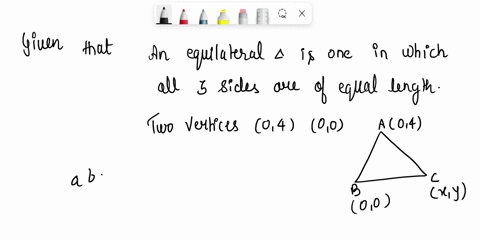 Given that An equilateral △ is one in which
all 3 sides are of equal length.
Two vertices (0,4) (0,0)
A(0,4)
ab.
B
(0,0)
C
(x,y)